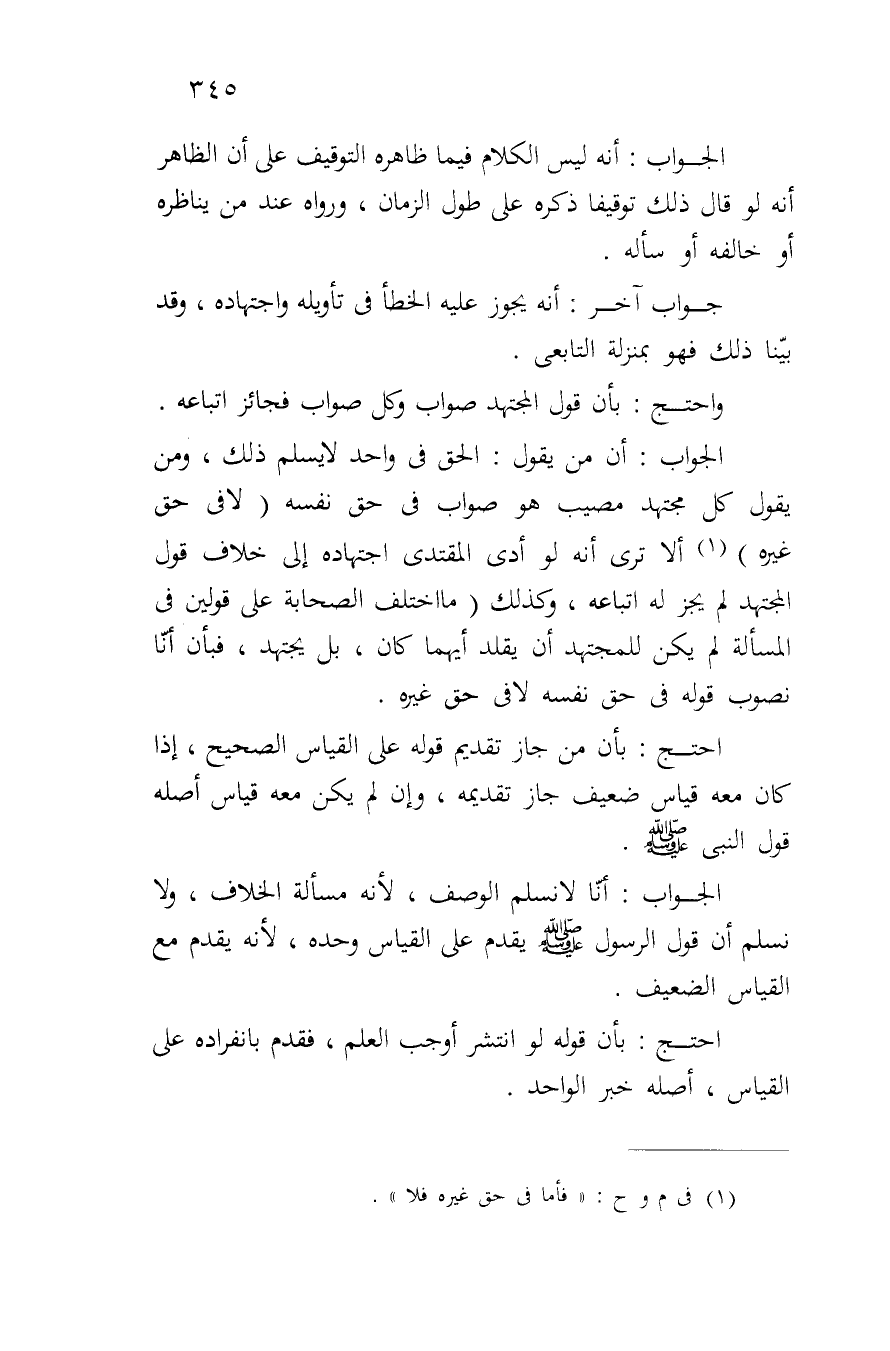 ٣٤٥
الجـواب : أنه ليس الكلام فيما ظاهره التوقيف على أن الظاهر
أنه لو قال ذلك توقيفا ذكره على طول الزمان ، ورواه عند من يناظره
أو خالفه أو سأله .
جـواب آخـر : أنه يجوز عليه الخطأ فى تأويله واجتهاده ، وقد
بيّنا ذلك فهو بمنزلة التابعى .
واحتـج : بأن قول المجتهد صواب وكل صواب فجائز اتباعه .
الجواب : أن من يقول : الحق فى واحد لايسلم ذلك ، ومن
يقول كل مجتهد مصيب هو صواب فى حق نفسه ( لافى حق
غيره ) (١) ألا ترى أنه لو أدى المقتدى اجتهاده إلى خلاف قول
المجتهد لم يجز له اتباعه ، وكذلك ( مااختلف الصحابة على قولين فى
المسألة لم يكن للمجتهد أن يقلد أيهما كان ، بل يجتهد ، فبأن أنّا
نصوب قوله فى حق نفسه لافى حق غيره .
احتـج : بأن من جاز تقديم قوله على القياس الصحيح ، إذا
كان معه قياس ضعيف جاز تقديمه ، وإن لم يكن معه قياس أصله
قول النبى ﷺ .
الجـواب : أنّا لانسلم الوصف ، لأنه مسألة الخلاف ، ولا
نسلم أن قول الرسول ﷺ يقدم على القياس وحده ، لأنه يقدم مع
القياس الضعيف .
احتـج : بأن قوله لو انتشر أوجب العلم ، فقدم بانفراده على
القياس ، أصله خبر الواحد .
(١) فى م و ح : « فأما فى حق غيره فلا » .